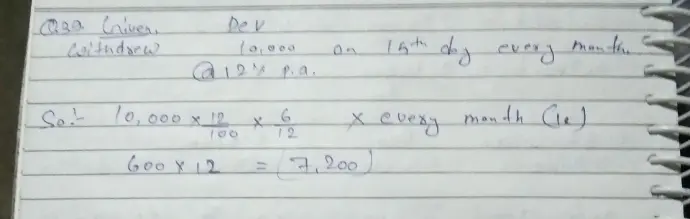 Q39 Given, Dev
Withdrew 10,000 on 15th day every month
@ 12% p.a.
So:- 10,000 × 12/100 × 6/12 × every month (12)
600 × 12 = 7,200